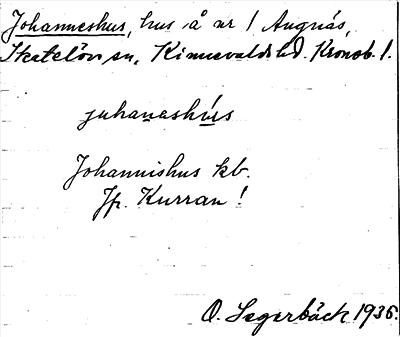 Johanneshus, hus å nr 1 Angnäs,
Skatelövs sn, Kinnevalds hd. Kronob. l.
juhanashús
Johannishus kb.
Jfr. Kurran!
O. Segerbäck 1935.